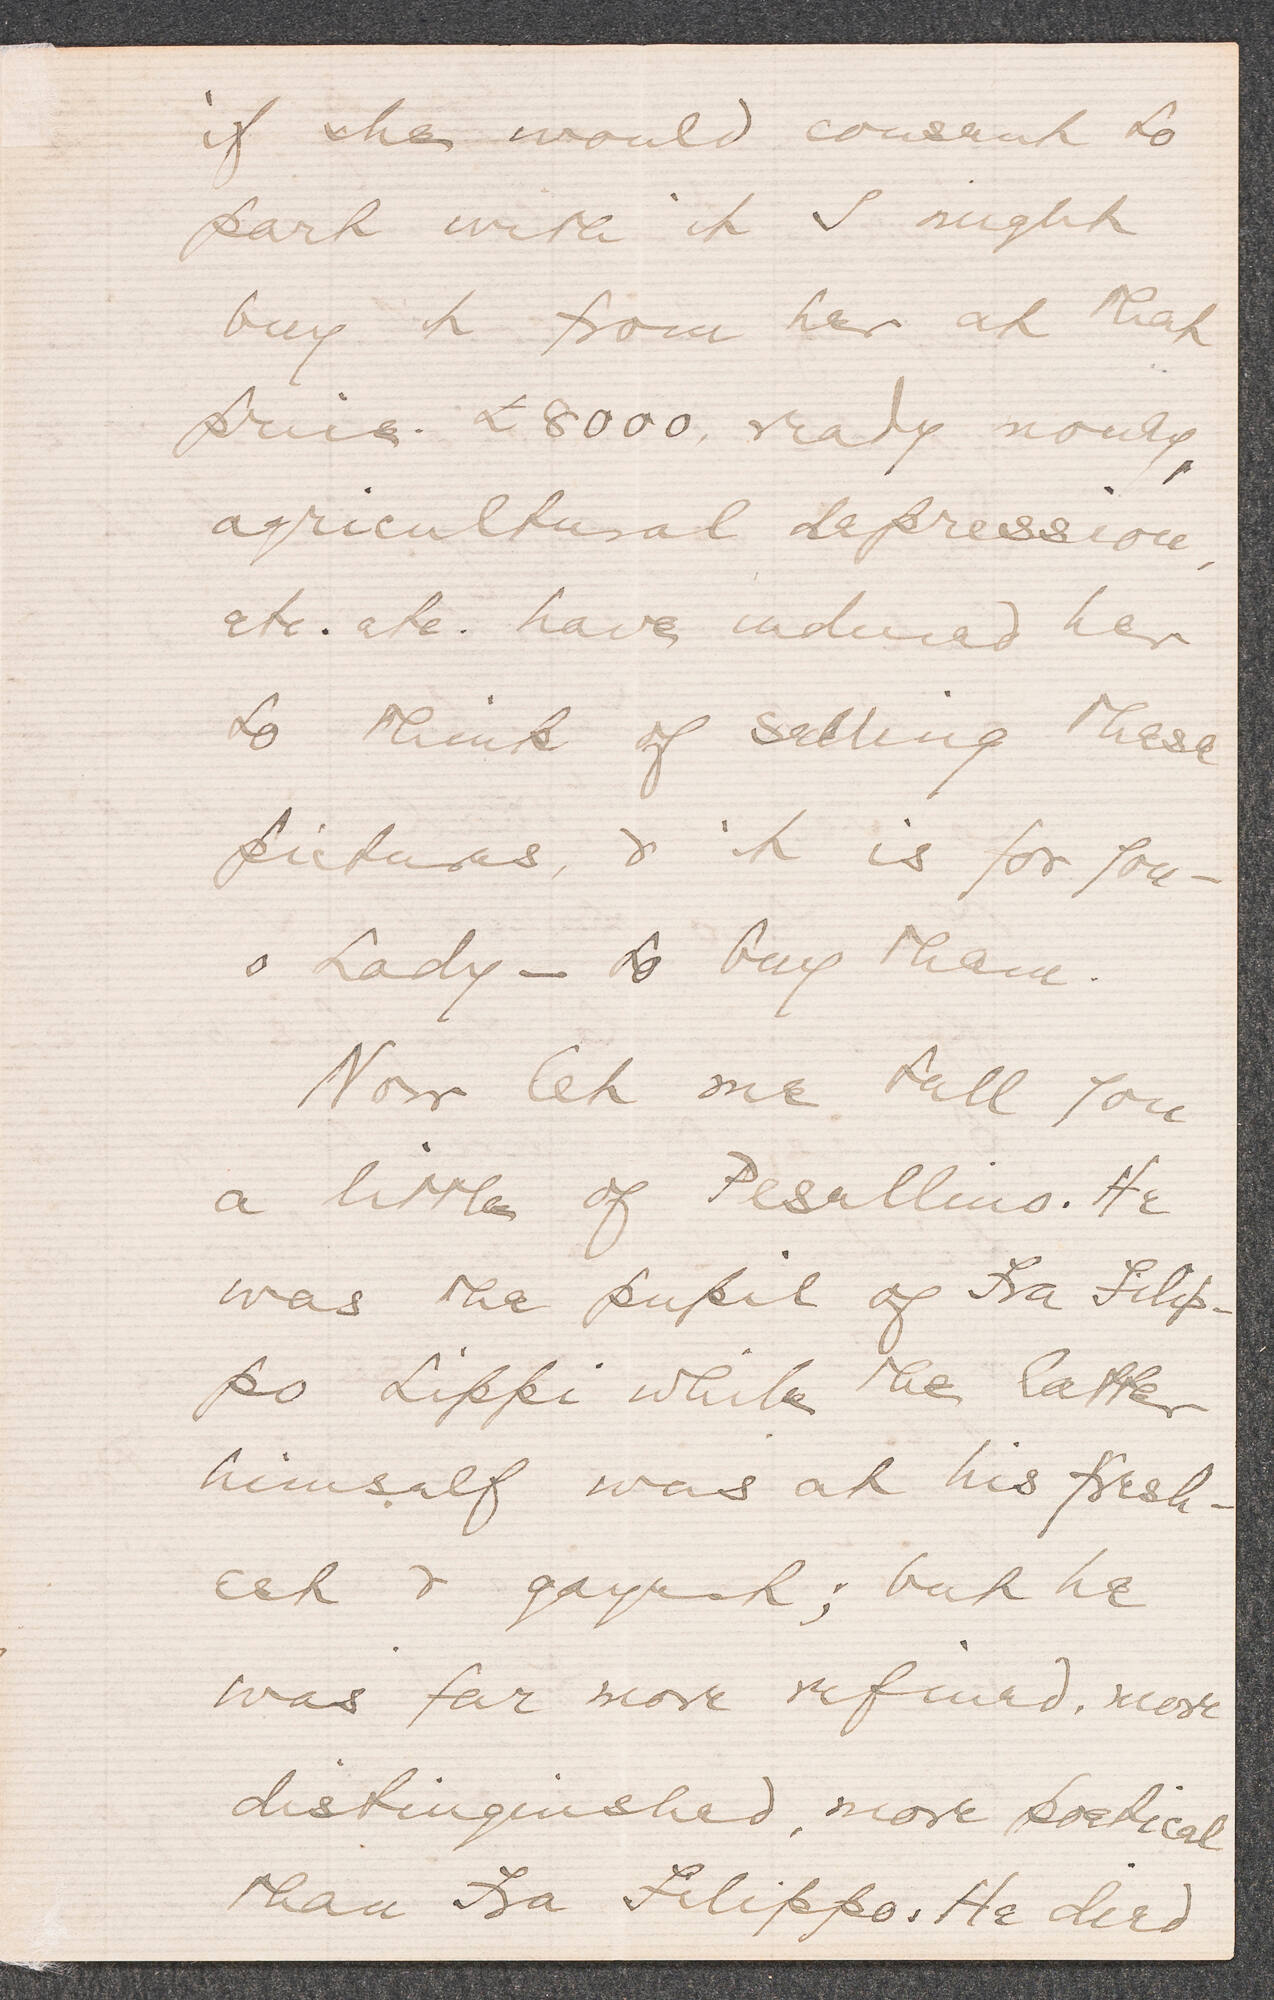 if she would consent to
part with it I might
buy it from her at that
price. £8000, ready money,
agricultural depression,
etc. etc. have induced her
to think of selling these
pictures, & it is for you –
o Lady – to buy them.
Now let me tell you
a little of Pesellino. He
was the pupil of Fra Filip-
po Lippi while the latter
himself was at his fresh-
est & gayest; but he
was far more refined, more
distinguished, more poetical
than Fra Filippo. He died